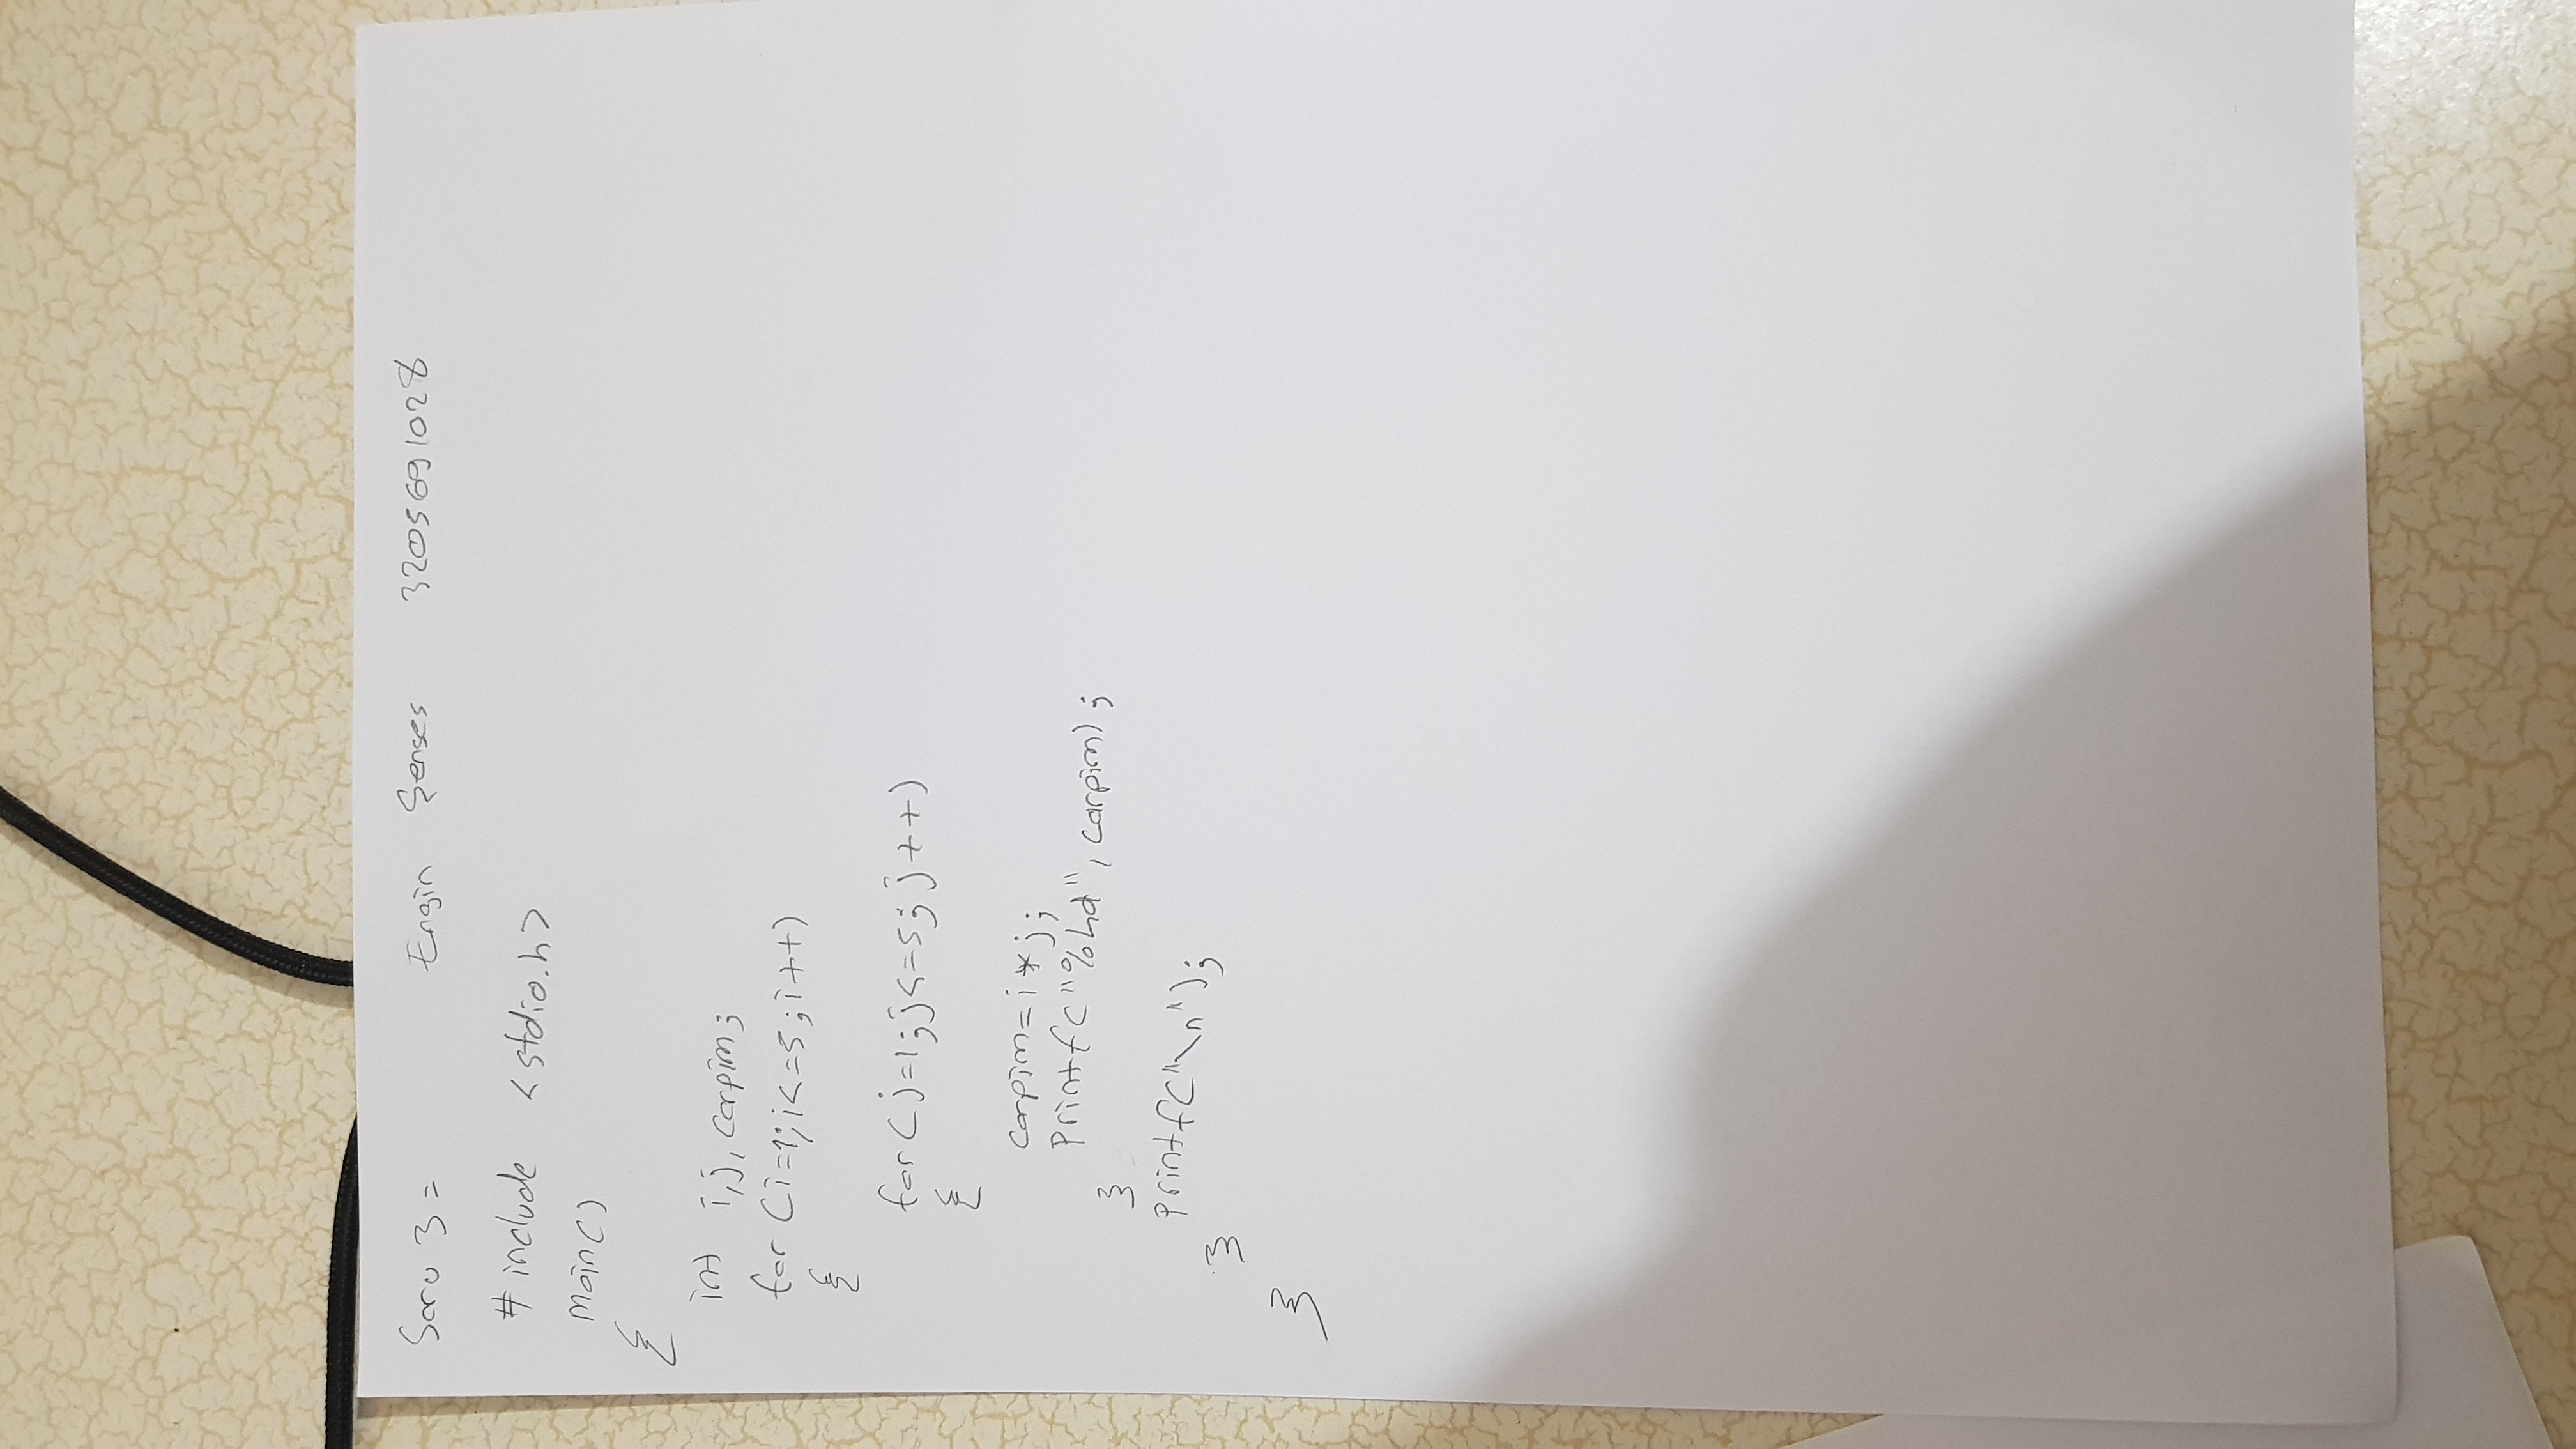 Soru 3 = Engin Şenses 3205691028
# include <stdio.h>
main()
{
int i,j, carpim;
for (i=1;i<=5;i++)
{
for(j=1;j<=5;j++)
{
carpim=i*j;
printf("%hd", carpim);
}
printf("\n");
}
}